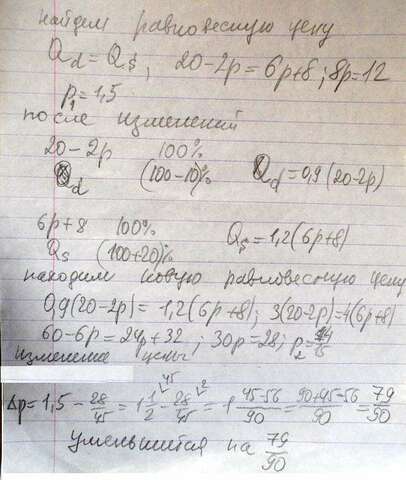 найдем равновесную цену
Qd = Qs; 20-2p = 6p+8; 8p=12
p₁=1,5
после изменений
20-2p 100%
Qd (100-10)% Qd=0,9(20-2p)
6p+8 100%
Qs (100+20)% Qs=1,2(6p+8)
находим новую равновесную цену
0,9(20-2p)= 1,2(6p+8); 3(20-2p)=4(6p+8)
60-6p=24p+32; 30p=28; p₂=14/15
изменение цены
Δp= 1,5 - 28/45 = 1 1/2 - 28/45 = 1 45-56/90 = 90+45-56/90 = 79/90
уменьшится на 79/90